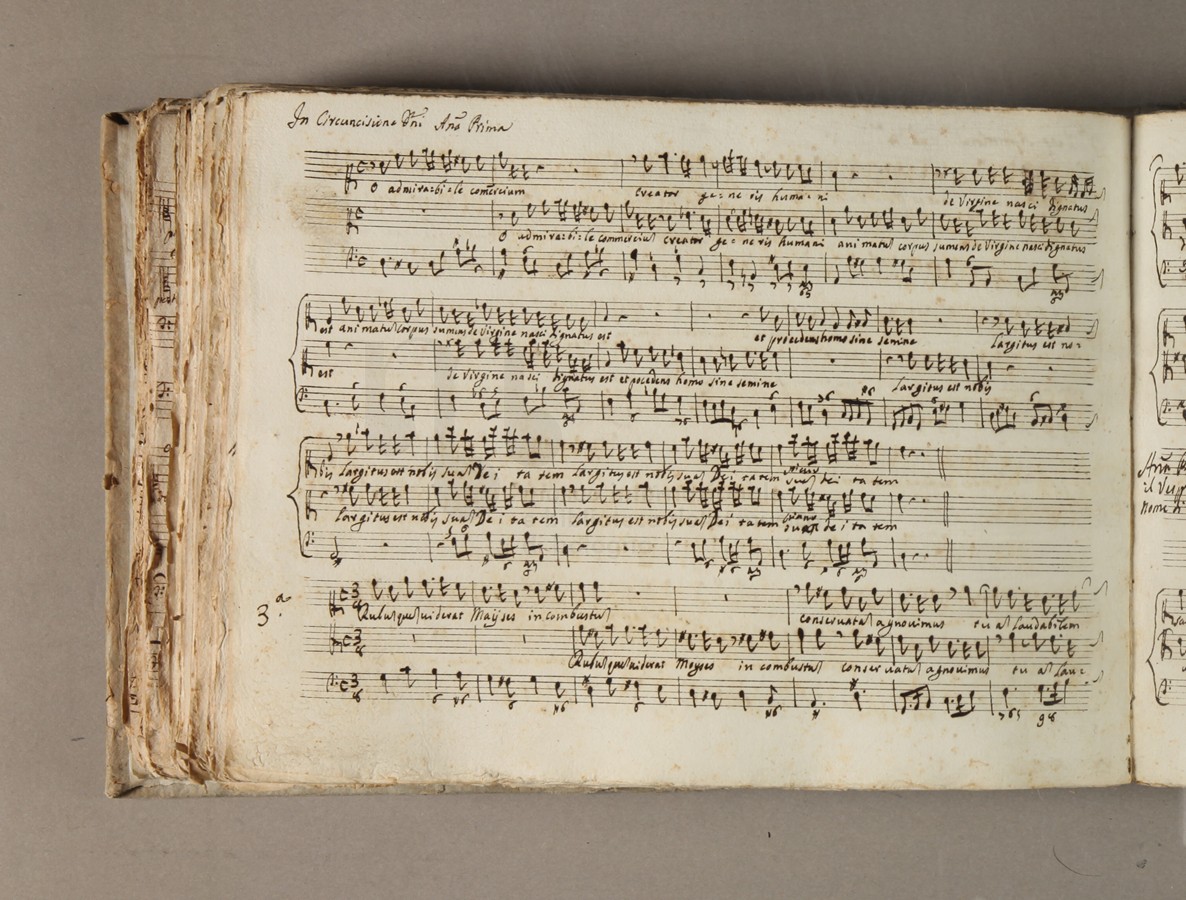 In Circuncisione Dñi Añã Prima
O admira=bi=le comercium creator ge=ne ris huma=ni de Virgine nasci dignatus
O admira=bi=le comercium creator ge=ne ris humani animatus corpus sumens de Virgine nasci dignatus
est animatus corpus sumens de Virgine nasci dignatus est et procedens homo sine semine largitus est no=
est de Virgine nasci dignatus est et procedens homo sine semine largitus est nobis
bis largitus est nobis suas Dei ta tem largitus est nobis suas Dei ta tem suas Dei ta tem
largitus est nobis suas De i ta tem largitus est nobis suas Dei ta tem piano suas de i ta tem
3.a
Rubus ques uiderat Moyses incombustus conseruatas agnouimus tu as laudabilem
Rubus ques uiderat Moyses in combustus conser uatas agnouimus tu as lau=